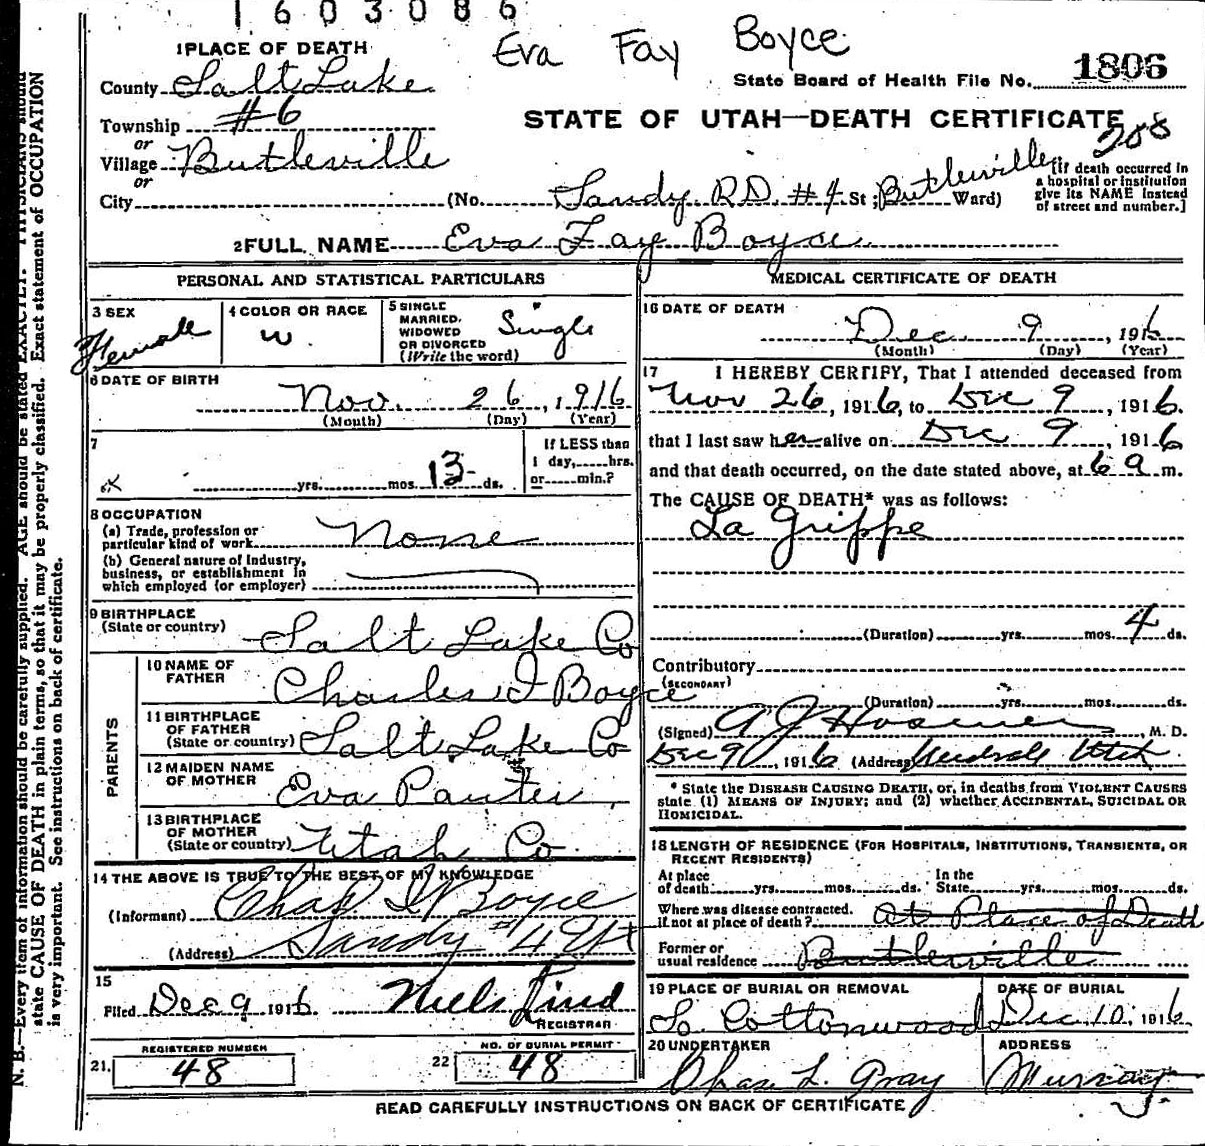 1603086
Eva Fay Boyce
1 PLACE OF DEATH
County Salt Lake
State Board of Health File No. 1806
Township #6
STATE OF UTAH—DEATH CERTIFICATE
208
or
Village Butlerville
or
City (No. Sandy R.D. #4 St; Butlerville Ward)
[If death occurred in
a hospital or institution
give its NAME instead
of street and number.]
2 FULL NAME Eva Fay Boyce
PERSONAL AND STATISTICAL PARTICULARS
3 SEX
Female
4 COLOR OR RACE
W.
5 SINGLE
MARRIED,
WIDOWED
OR DIVORCED
(Write the word)
Single
6 DATE OF BIRTH
Nov. 26, 1916
(Month) (Day) (Year)
7
yrs. mos. 13 ds.
If LESS than
1 day, hrs.
or min.?
8 OCCUPATION
(a) Trade, profession or
particular kind of work None
(b) General nature of Industry,
business, or establishment in
which employed (or employer)
9 BIRTHPLACE
(State or country) Salt Lake Co
PARENTS
10 NAME OF
FATHER Charles I Boyce
11 BIRTHPLACE
OF FATHER
(State or country) Salt Lake Co
12 MAIDEN NAME
OF MOTHER Eva
13 BIRTHPLACE
OF MOTHER
(State or country) Utah Co.
14 THE ABOVE IS TRUE TO THE BEST OF MY KNOWLEDGE
(Informant) Chas I Boyce
(Address) Sandy #4 Ut
15
Filed Dec 9 1916 Niels Lind
REGISTRAR
REGISTERED NUMBER
21. 48
NO. OF BURIAL PERMIT
22 48
MEDICAL CERTIFICATE OF DEATH
16 DATE OF DEATH
Dec 9, 1916
(Month) (Day) (Year)
17 I HEREBY CERTIFY, That I attended deceased from
Nov 26, 1916, to Dec 9, 1916.
that I last saw her alive on Dec 9, 1916
and that death occurred, on the date stated above, at 6 a m.
The CAUSE OF DEATH* was as follows:
La Grippe
(Duration) yrs. mos. 4 ds.
Contributory
(SECONDARY)
(Duration) yrs. mos. ds.
(Signed) A J , M. D.
Dec 9, 1916 (Address) Utah
* State the DISEASE CAUSING DEATH, or, in deaths from VIOLENT CAUSES
state (1) MEANS OF INJURY; and (2) whether ACCIDENTAL, SUICIDAL OR
HOMICIDAL.
18 LENGTH OF RESIDENCE (FOR HOSPITALS, INSTITUTIONS, TRANSIENTS, OR
RECENT RESIDENTS)
At place
of death yrs. mos. ds.
In the
State yrs. mos. ds.
Where was disease contracted,
if not at place of death? At Place of Death
Former or
usual residence Butlerville
19 PLACE OF BURIAL OR REMOVAL
So. Cottonwood
DATE OF BURIAL
Dec 10, 1916
20 UNDERTAKER
Chas. L. Gray
ADDRESS
Murray
READ CAREFULLY INSTRUCTIONS ON BACK OF CERTIFICATE
N. B.—Every item of information should be carefully supplied. AGE should be stated EXACTLY. PHYSICIANS should
state CAUSE OF DEATH in plain terms, so that it may be properly classified. Exact statement of OCCUPATION
is very important. See instructions on back of certificate.